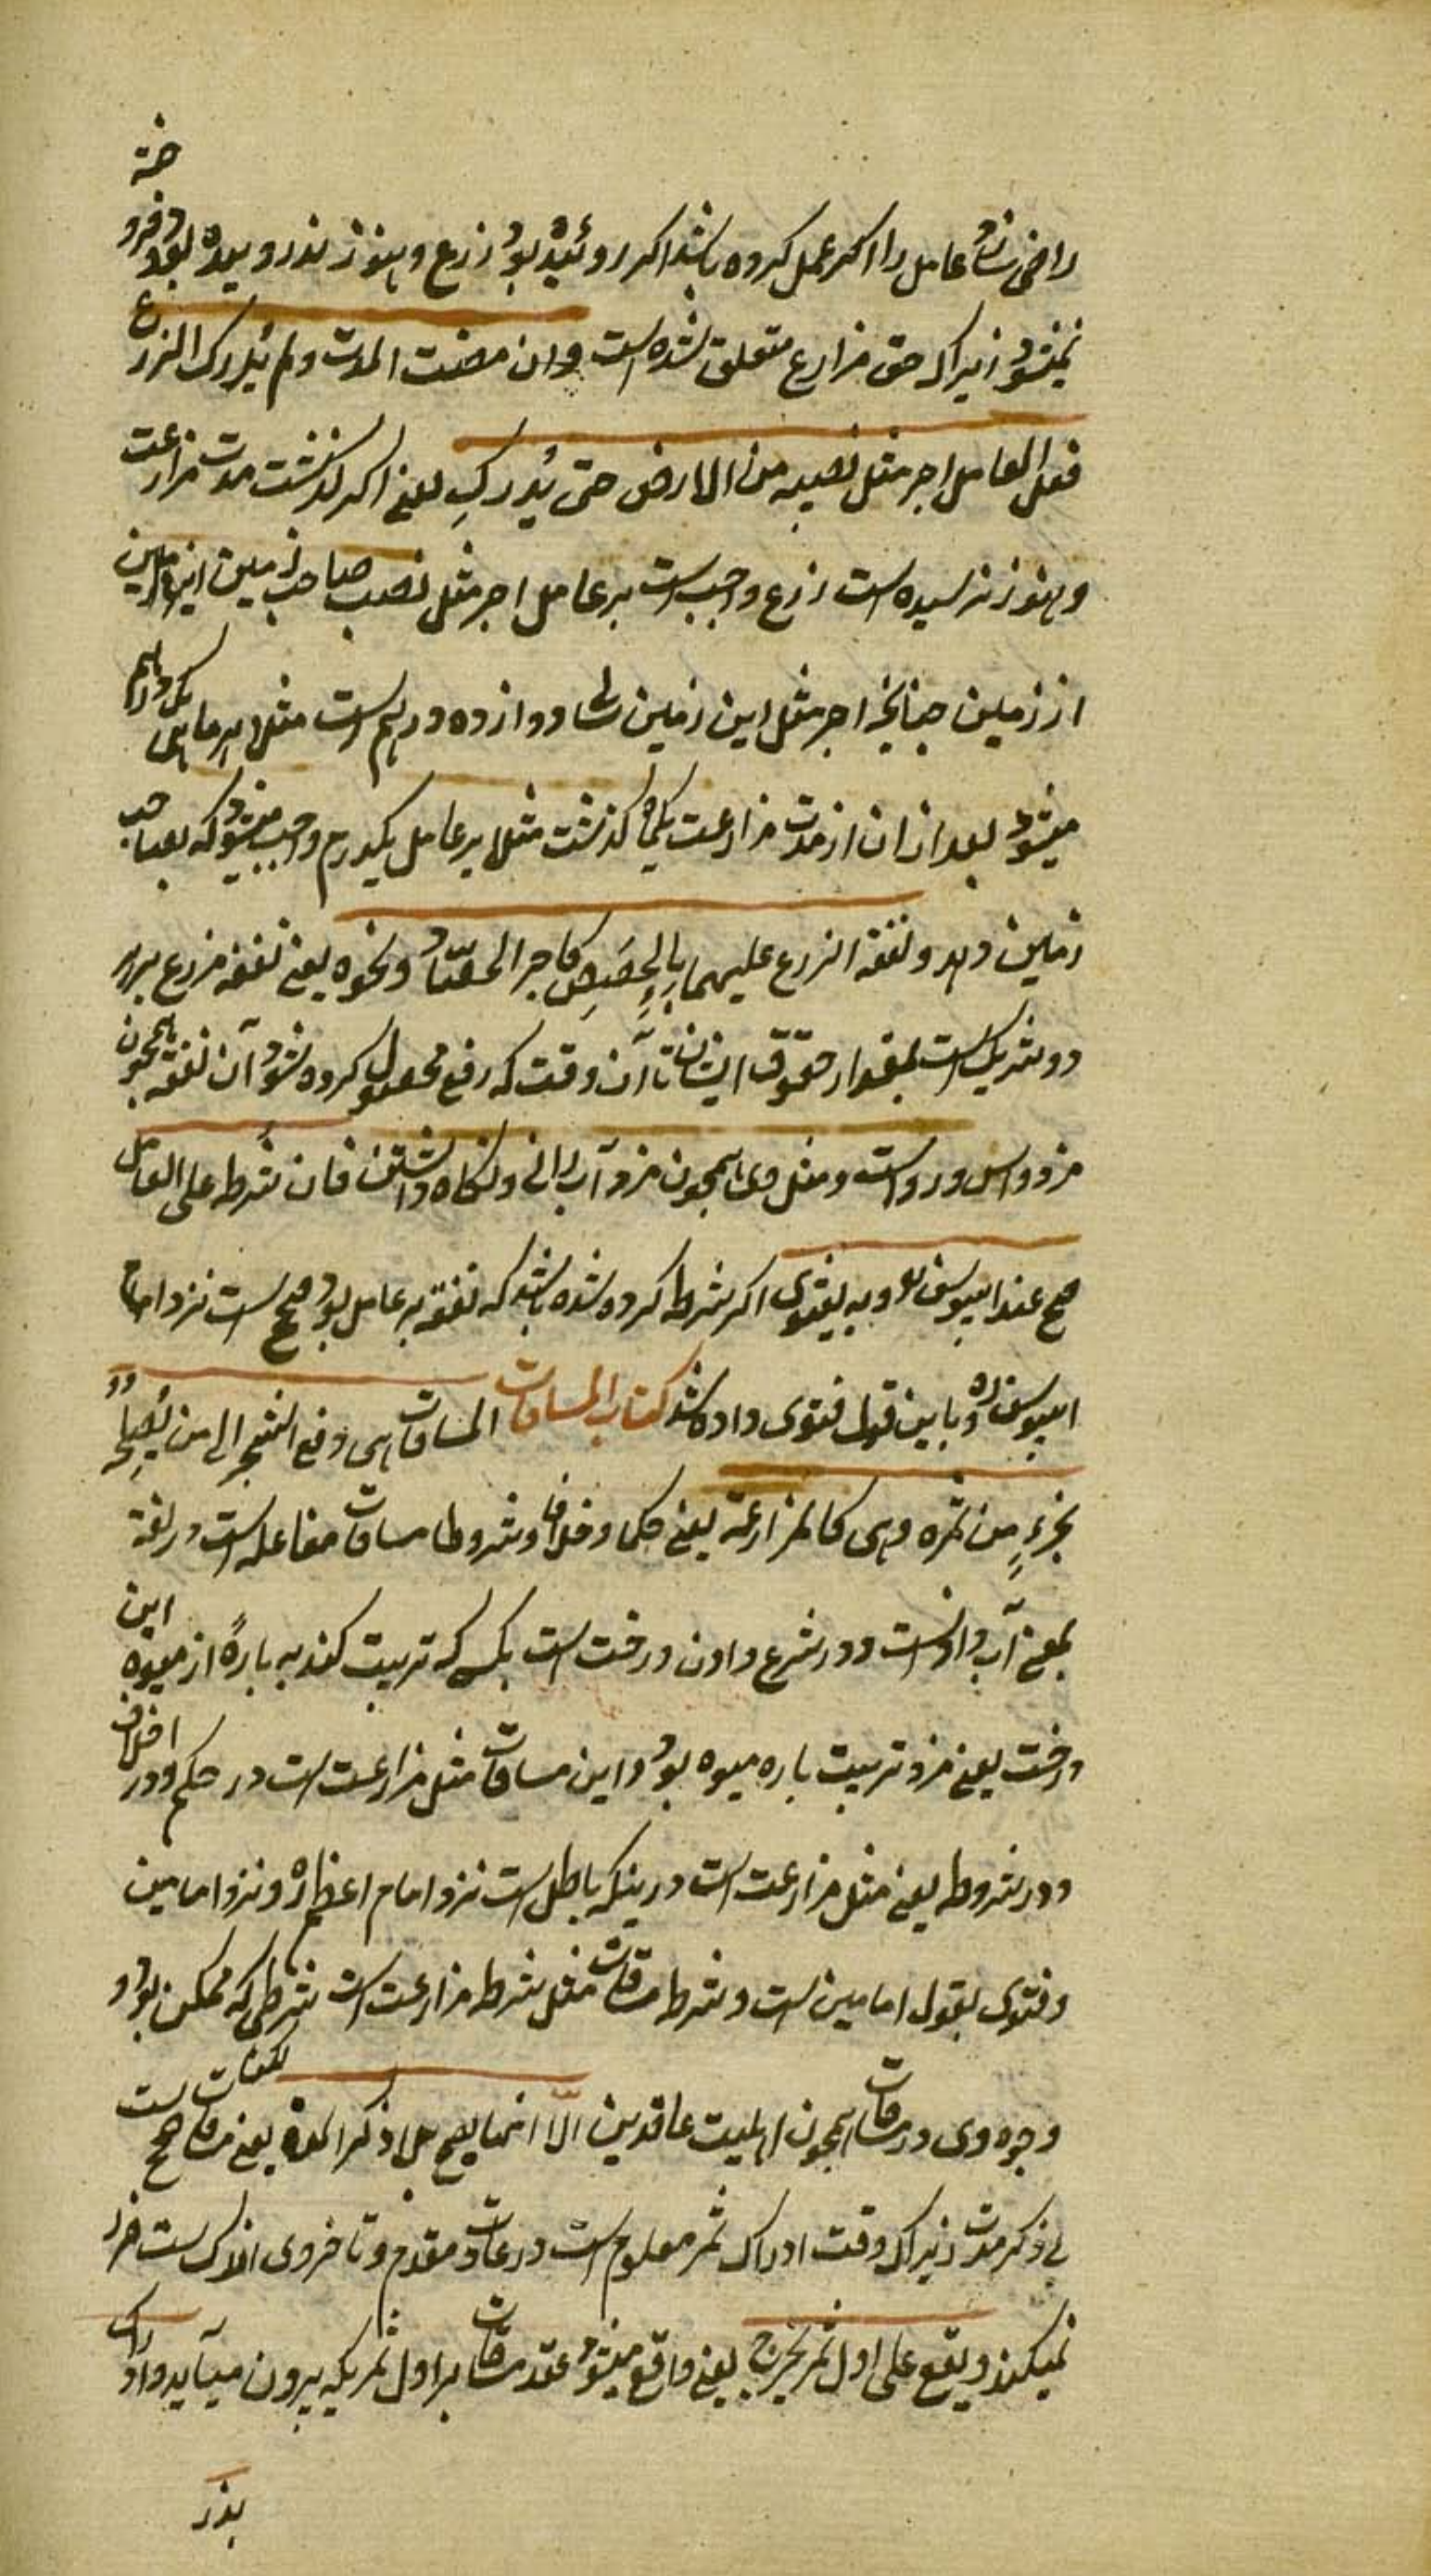 خته
راضی شود عامل را اگر عمل کرده باشد اگر روئیده بود زرع و هنوز ندرویده بود فرو
نمیشود زیراکه حق مزارع متعلق شده است وان مضت المدت و لم یُدرک الزرع
فعلی العامل اجر مثل نصیبه من الارض حتی یُدرک یعنی اگر گذشت مدت مزارعت
و هنوز نرسیده است زرع واجب است بر عامل اجر مثل نصیب صاحب زمین
از زمین چنانچه اجر مثل این زمین دوازده درهم است مثلا هر ماهی یک درهم
میشود بعد ازان از مدت مزارعت یکماه گذشت مثلا بر عامل یکدرم واجب میشود که بصاحب
زمین دهد و نفقة الزرع علیهما بالحِصَصِ کاجر الحصّاد و نحوه یعنی نفقه زرع بر هر
دو شریک است بمقدار حقوق ایشان تا آن وقت که رفع محصول کرده شود آن نفقه همچون
مزد داس درو است و مثل وی همچون مزد آب رانی و نگاه داشتن فان شرط علی العامل
صح عند ابییوسف و به یفتوی اگر شرط کرده شده باشد که نفقه بر عامل بود صحیح است نزد امام
ابییوسف ره و باین قول فتوی داده شد کتاب المساقات المساقات هی دفع الشجر الی من یُصلِحُه
بجزءٍ من ثمره وهی کالمزارعة یعنی حکما و خلافا و شروطا مساقات مفاعله است در لغة
بمعنی آب دادنست و در شرع دادن درخت است بکسی که تربیت کند به بارهٔ از میوه این
درخت یعنی مزد تربیت باره میوه بود و این مساقات مثل مزارعت است در حکم و در اختلاف
و در شروط یعنی مثل مزارعت است درینکه باطل است نزد امام اعظم ره و نزد امامین
و فتوی بقول امامین است و شرط مساقات مثل شرط مزارعت است شرطی که ممکن بود
وجود وی در مساقات همچون اهلیت عاقدین الّا انها یصح بلا ذکر المدة یعنی مساقات صحیح است
بی ذکر مدت زیراکه وقت ادراک ثمر معلوم است در عادت و مقدم و تاخر وی اندک است ضرر
نمیکند و یقع علی اول ثمر یخرج یعنی واقع میشود عقد مساقات بر اول ثمریکه بیرون میآید و ادراک
بذر